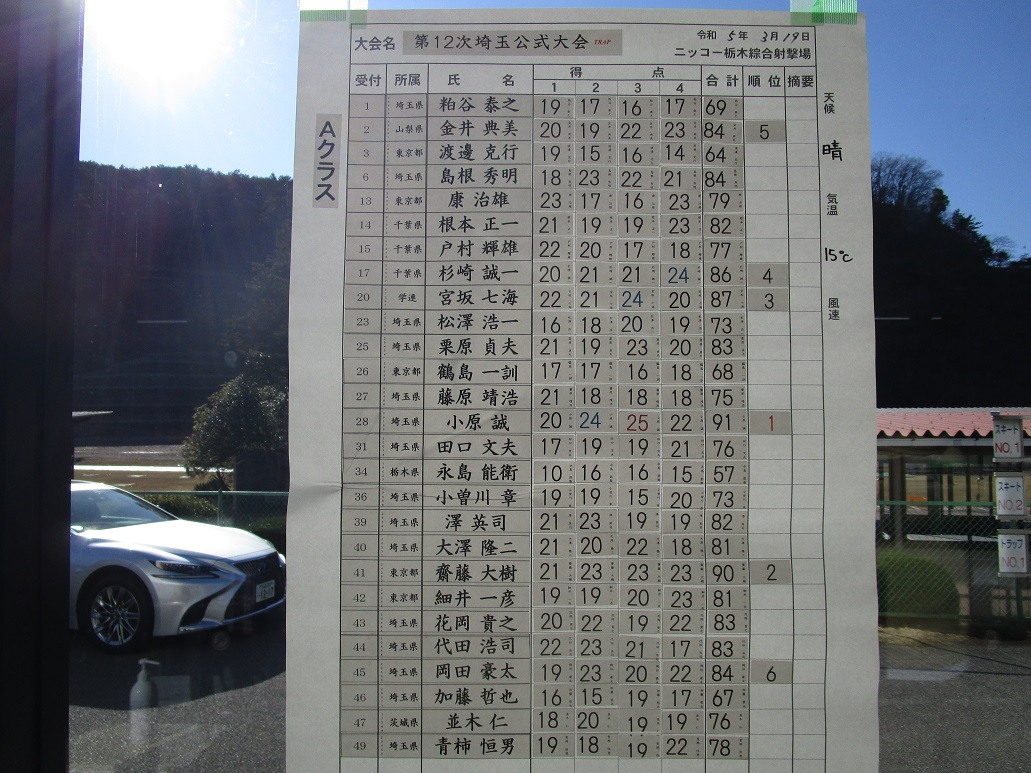 大会名 第12次埼玉公式大会 TRAP
令和 5年 3月19日
ニッコー栃木綜合射撃場
Aクラス
受付 所属 氏名 得点 合計 順位 摘要
1 2 3 4
1 埼玉県 粕谷 泰之 19 17 16 17 69
2 山梨県 金井 典美 20 19 22 23 84 5
3 東京都 渡邊 克行 19 15 16 14 64
6 埼玉県 島根 秀明 18 23 22 21 84
13 東京都 康 治雄 23 17 16 23 79
14 千葉県 根本 正一 21 19 19 23 82
15 千葉県 戸村 輝雄 22 20 17 18 77
17 千葉県 杉崎 誠一 20 21 21 24 86 4
20 学連 宮坂 七海 22 21 24 20 87 3
23 埼玉県 松澤 浩一 16 18 20 19 73
25 埼玉県 栗原 貞夫 21 19 23 20 83
26 東京都 鶴島 一訓 17 17 16 18 68
27 埼玉県 藤原 靖浩 21 18 18 18 75
28 埼玉県 小原 誠 20 24 25 22 91 1
31 埼玉県 田口 文夫 17 19 19 21 76
34 栃木県 永島 能衛 10 16 16 15 57
36 埼玉県 小曽川 章 19 19 15 20 73
39 埼玉県 澤 英司 21 23 19 19 82
40 埼玉県 大澤 隆二 21 20 22 18 81
41 東京都 齋藤 大樹 21 23 23 23 90 2
42 東京都 細井 一彦 19 19 20 23 81
43 埼玉県 花岡 貴之 20 22 19 22 83
44 埼玉県 代田 浩司 22 23 21 17 83
45 埼玉県 岡田 豪太 19 23 20 22 84 6
46 埼玉県 加藤 哲也 16 15 19 17 67
47 茨城県 並木 仁 18 20 19 19 76
49 埼玉県 青柿 恒男 19 18 19 22 78
天候
晴
気温
15℃
風速
スキート
NO.1
スキート
NO.2
トラップ
NO.1